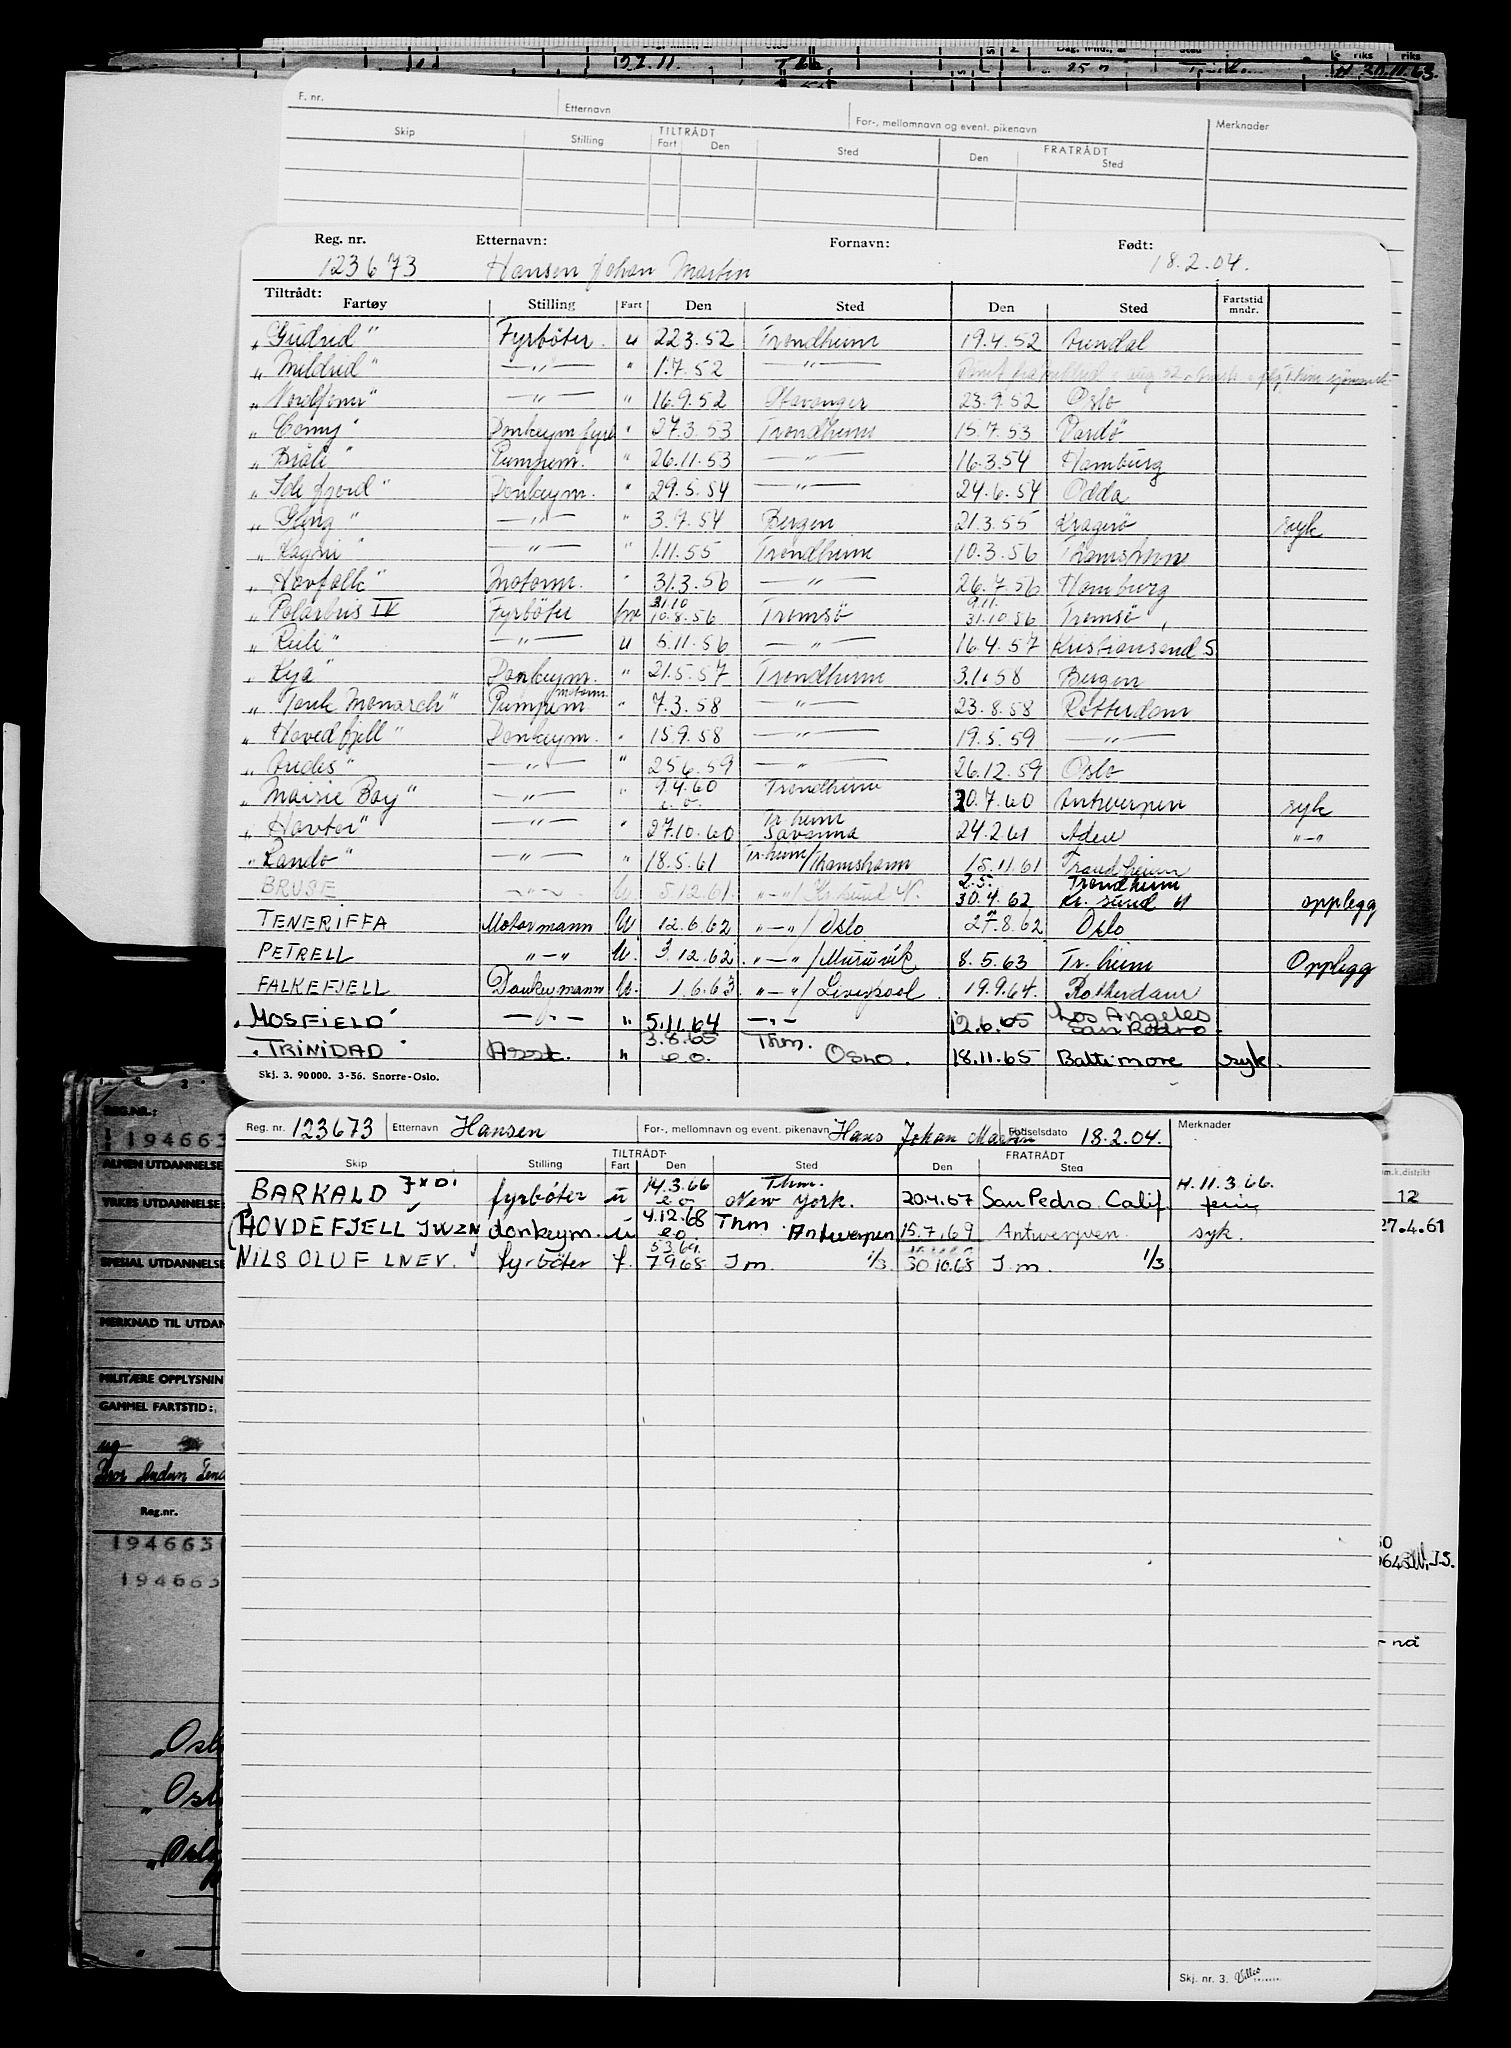 22.11.
riks riks
30.11.63.
F. nr. Etternavn For-, mellomnavn og event. pikenavn Merknader
TILTRÅDT FRATRÅDT
Skip Stilling Fart Den Sted Den Sted
Reg. nr. Etternavn: Fornavn: Født:
123673 Hansen Johan Martin 18.2.04.
Tiltrådt:
Fartøy Stilling Fart Den Sted Den Sted Fartstid mndr.
"Gudrid" Fyrböter. u 22.3.52 Trondheim 19.4.52 Arendal
"Mildrid" —"— " 1.7.52 —"—
" " —"— " 16.9.52 Stavanger 23.9.52 Oslo
"Corny" Donkeym fyrb " 27.3.53 Trondheim 15.7.53 Vardö
"Bråli" Pumpem. " 26.11.53 —"— 16.3.54 Hamburg
"Folefjord" Donkeym. " 29.5.54 —"— 24.6.54 Odda
" " —"— " 3.7.54 Bergen 21.3.55 Kragerö syk
"Ragni" —"— " 1.11.55 Trondheim 10.3.56 Thamshavn
"Havfalk" Motorm. " 31.3.56 —"— 26.7.56 Hamburg
31.10 9.11.
"Polarbris IV" Fyrböter 10.8.56 Tromsö 31.10.56 Tromsö
" " —"— u 5.11.56 —"— 16.4.57 Kristiansand S.
"Kya" Donkeym. " 21.5.57 Trondheim 3.1.58 Bergen
motorm.
"York Monarch" Pumpem. " 7.3.58 —"— 23.8.58 Rotterdam
"Hovedfjell" Donkeym. " 15.9.58 —"— 19.5.59 —"—
"Andes" —"— " 25.6.59 —"— 26.12.59 Oslo
"Marie Bay" —"— " 1.4.60 e.o. Trondheim 30.7.60 Antwerpen syk
"Havtor" —"— " 27.10.60 Tr.heim Savanna 24.2.61 Aden "-"
"Rando" —"— " 18.5.61 Tr.heim/Thamshavn 15.11.61 Trondheim
2.5. Trondheim
BRUSE —"— U 5.12.61. "-"/Kr.sund N. 30.4.62 Kr. sund N opplegg
TENERIFFA Motormann U 12.6.62 "-"/Oslo 27.8.62 Oslo
PETRELL "-" U. 3.12.62 "-"/Muruvik 8.5.63 Tr.heim Opplegg
FALKEFJELL Donkeymann U. 1.6.63 "-"/Liverpool 19.9.64. Rotterdam
"MOSFIELD" —"— " 5.11.64 —"— 12.6.65 Los Angeles San Pedro.
"TRINIDAD" Asst. " 3.8.65 e.o. Thm. Oslo. 18.11.65 Baltimore syk.
Skj. 3. 90000. 3-56. Snorre-Oslo.
Reg. nr. 123673 Etternavn Hansen For-, mellomnavn og event. pikenavn Hans Johan Martin Fødselsdato 18.2.04. Merknader
TILTRÅDT FRATRÅDT
Skip Stilling Fart Den Sted Den Sted
BARKALD JXDI fyrböter u 14.3.66 e.o. Thm. New York. 20.4.67 San Pedro. Calif. H. 11.3.66.
(HOVDEFJELL JWZN donkeym. u 4.12.68 e.o. Thm. Antwerpen 15.7.69 Antwerpen. syk.
5.3.69.
NILS OLUF LNEV. fyrböter f. 7.9.68 I m. 1/3 30.10.68 I m. 1/3
Skj. nr. 3.
REG.NR.:
194663
ALMEN UTDANNELSE
YRKES UTDANNELSE
SPESIAL UTDANNELSE
MERKNAD TIL UTDAN
MILITÆRE OPPLYSNIN
GAMMEL FARTSTID:
Reg.nr.
194663
194663
m.k.distrikt
12
27.4.61